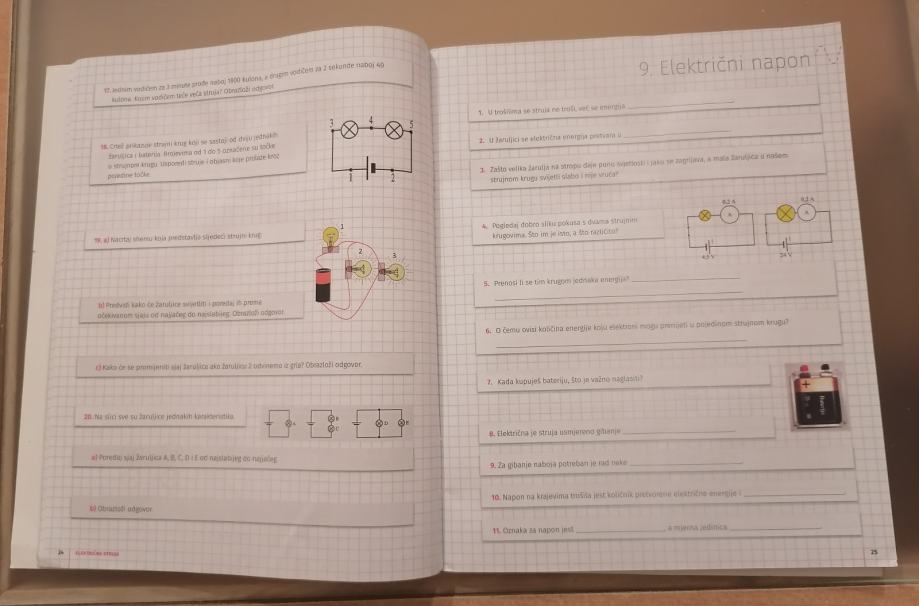 17. Jednim vodičem za 3 minute prođe naboj 1800 kulona, a drugim vodičem za 2 sekunde naboj 40
kulona. Kojim vodičem teče veća struja? Obrazloži odgovor.
18. Crtež prikazuje strujni krug koji se sastoji od dviju jednakih
žaruljica i baterija. Brojevima od 1 do 5 označene su točke
u strujnom krugu. Usporedi struje i objasni koje prolaze kroz
pojedine točke.
3
4
5
1
2
19. a) Nacrtaj shemu koja predstavlja sljedeći strujni krug.
1
2
3
b) Predvidi kako će žaruljice svijetliti i poredaj ih prema
očekivanom sjaju od najjačeg do najslabijeg. Obrazloži odgovor.
c) Kako će se promijeniti sjaj žaruljica ako žaruljicu 2 odvrnemo iz grla? Obrazloži odgovor.
20. Na slici sve su žaruljice jednakih karakteristika.
A
B
C
D
E
a) Poredaj sjaj žaruljica A, B, C, D i E od najslabijeg do najjačeg.
b) Obrazloži odgovor.
24 ELEKTRIČNA STRUJA
9. Električni napon
1. U trošilima se struja ne troši, već se energija
2. U žaruljici se električna energija pretvara u
3. Zašto velika žarulja na stropu daje puno svjetlosti i jako se zagrijava, a mala žaruljica u našem
strujnom krugu svijetli slabo i nije vruća?
4. Pogledaj dobro sliku pokusa s dvama strujnim
krugovima. Što im je isto, a što različito?
0,2 A
A
4,5 V
0,2 A
A
24 V
5. Prenosi li se tim krugom jednaka energija?
6. O čemu ovisi količina energije koju elektroni mogu prenijeti u pojedinom strujnom krugu?
7. Kada kupuješ bateriju, što je važno naglasiti?
+
8. Električna je struja usmjereno gibanje
9. Za gibanje naboja potreban je rad neke
10. Napon na krajevima trošila jest količnik pretvorene električne energije i
11. Oznaka za napon jest , a mjerna jedinica
25